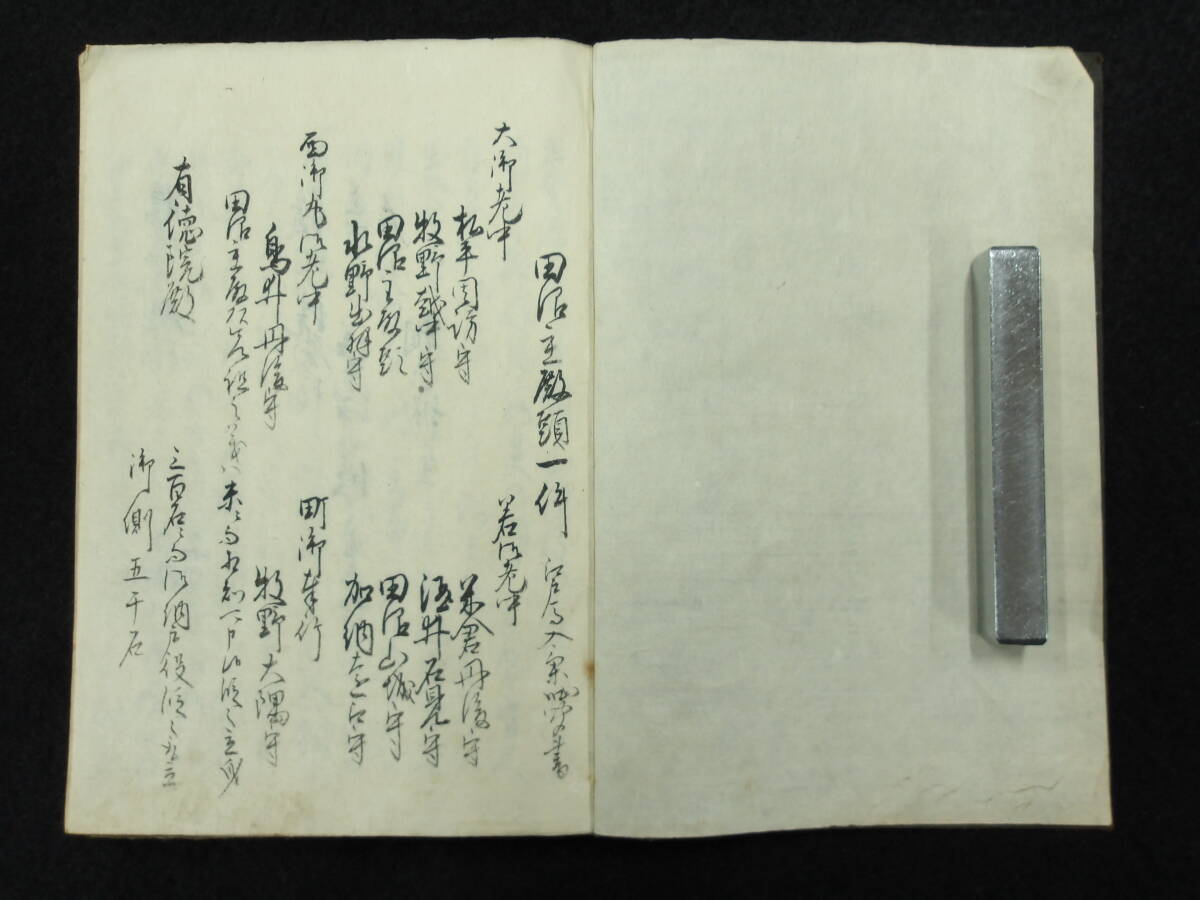 田沼主殿頭一件
大御老中
松平周防守
牧野越中守
田沼主殿頭
水野出羽守
若御老中
米倉丹後守
酒井石見守
田沼山城守
加納遠江守
西御丸御老中
鳥井丹後守
町御奉行
牧野大隅守
田沼主殿頭
有徳院殿
三百石ニ而御納戸役
御側五千石